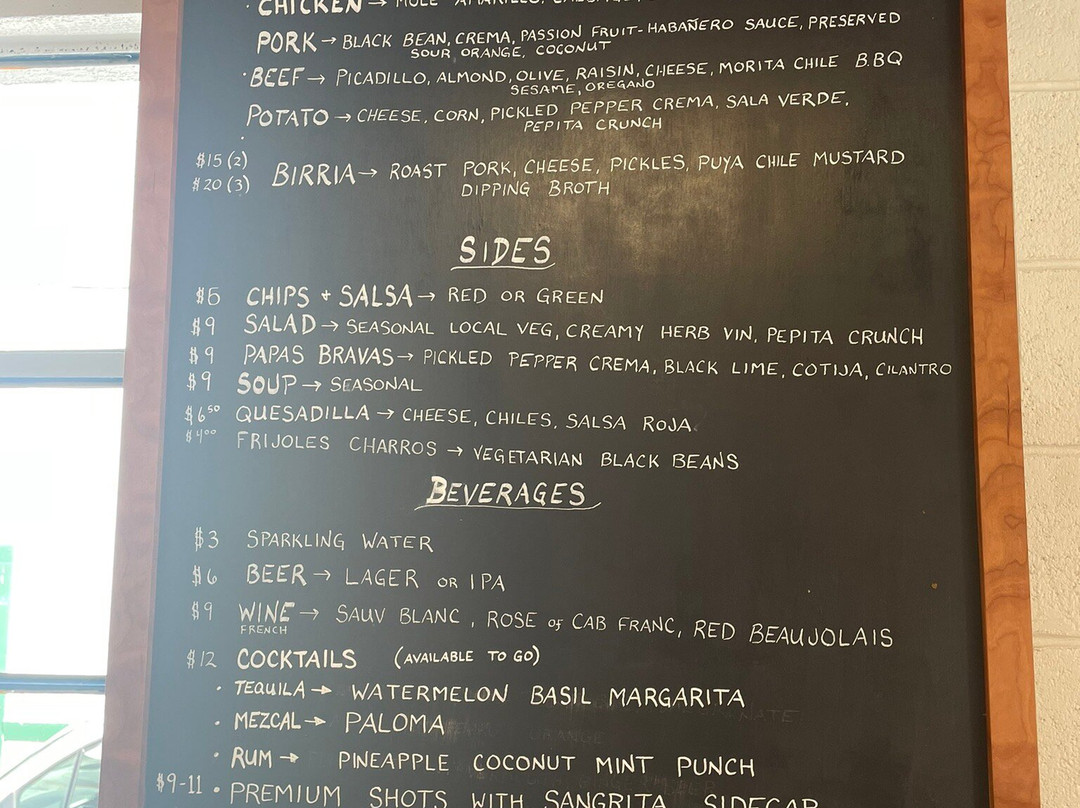 · CHICKEN → MOLE AMARILLO,
PORK → BLACK BEAN, CREMA, PASSION FRUIT-HABAÑERO SAUCE, PRESERVED
SOUR ORANGE, COCONUT
· BEEF → PICADILLO, ALMOND, OLIVE, RAISIN, CHEESE, MORITA CHILE B.BQ
SESAME, OREGANO
POTATO → CHEESE, CORN, PICKLED PEPPER CREMA, SALA VERDE,
PEPITA CRUNCH
$15 (2)
$20 (3)
BIRRIA → ROAST PORK, CHEESE, PICKLES, PUYA CHILE MUSTARD
DIPPING BROTH
SIDES
CHIPS + SALSA → RED OR GREEN
$9 SALAD → SEASONAL LOCAL VEG, CREAMY HERB VIN, PEPITA CRUNCH
$9 PAPAS BRAVAS → PICKLED PEPPER CREMA, BLACK LIME, COTIJA, CILANTRO
$9 SOUP → SEASONAL
$6⁵⁰ QUESADILLA → CHEESE, CHILES, SALSA ROJA
$4⁰⁰ FRIJOLES CHARROS → VEGETARIAN BLACK BEANS
BEVERAGES
$3 SPARKLING WATER
$6 BEER → LAGER OR IPA
$9 WINE → SAUV BLANC, ROSE of CAB FRANC, RED BEAUJOLAIS
FRENCH
$12 COCKTAILS (AVAILABLE TO GO)
· TEQUILA → WATERMELON BASIL MARGARITA
· MEZCAL → PALOMA
· RUM → PINEAPPLE COCONUT MINT PUNCH
$9-11 · PREMIUM SHOTS WITH SANGRITA SIDECAR